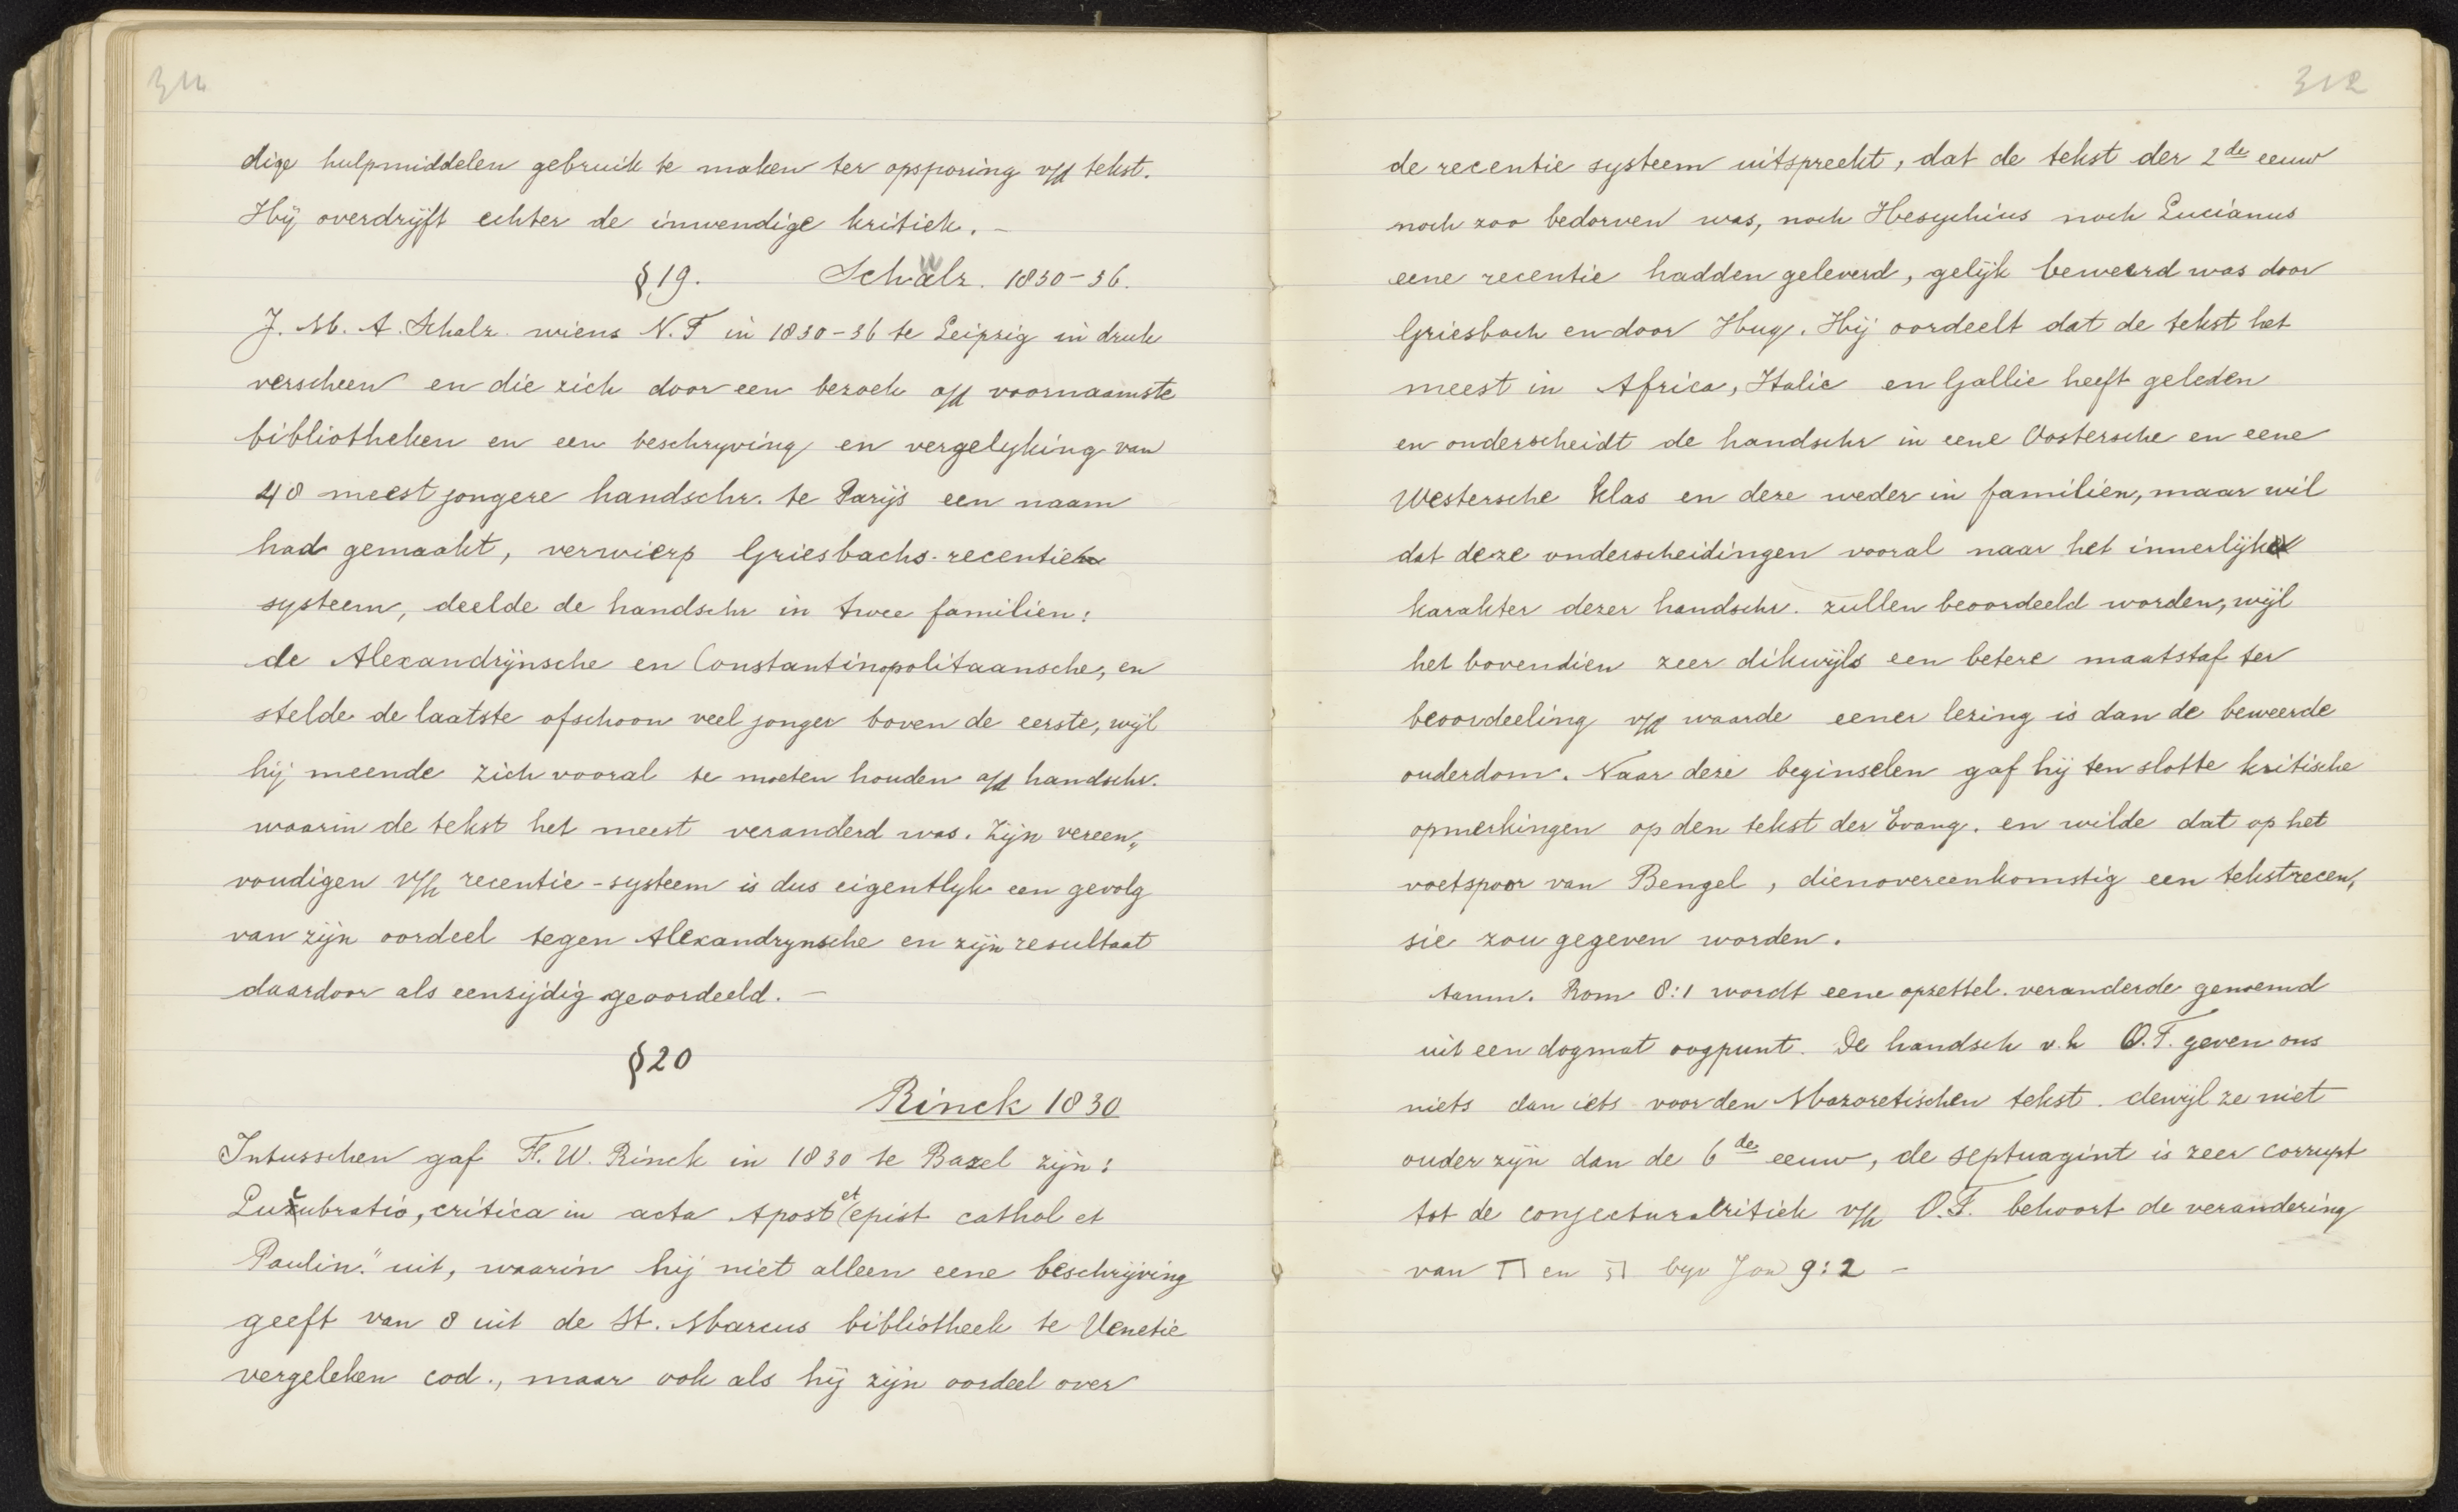 311
dige hulpmiddelen gebruik te maken ter opsporing v/d tekst.
Hij overdrijft echter de inwendige kritiek. –
§ 19. Schalz. 1830–36.
J. M. A. Schalz wiens N. T in 1830–36 te Leipzig in druk
verscheen en die zich door een bezoek a/d voornaamste
bibliotheken en een beschryving en vergelyking van
48 meest jongere handschr. te Parijs een naam
had gemaakt, verwierp Griesbachs recentie
systeem, deelde de handschr in twee familien:
de Alexandrijnsche en Constantinopolitaansche, en
stelde de laatste ofschoon veel jonger boven de eerste, wijl
hij meende zich vooral te moeten houden a/d handschr.
waarin de tekst het meest veranderd was. Zijn vereen„
voudigen v/h recentie-systeem is dus eigentlyk een gevolg
van zijn oordeel tegen Alexandrynsche en zijn resultaat
daardoor als eenzijdig geoordeeld. –
§ 20
Rinck 1830
Intusschen gaf F. W. Rinck in 1830 te Bazel zijn:
Lucubratio, critica in acta Apost et epist cathol et
Paulin." uit, waarin hij niet alleen eene beschrijving
geeft van 8 uit de St. Marcus bibliotheek te Venetie
vergeleken cod., maar ook als hij zijn oordeel over
312
de recentie systeem uitspreekt, dat de tekst der 2de eeuw
noch zoo bedorven was, noch Hesychius noch Lucianus
eene recentie hadden geleverd, gelijk beweerd was door
Griesbach en door Hug. Hij oordeelt dat de tekst het
meest in Africa, Italie en Gallie heeft geleden
en onderscheidt de handschr in eene Oostersche en eene
Westersche klas en deze weder in familien, maar wil
dat deze onderscheidingen vooral naar het innerlijk
karakter dezer handschr. zullen beoordeeld worden, wijl
het bovendien zeer dikwijls een betere maatstaf ter
beoordeeling v/d waarde eener lezing is dan de beweerde
ouderdom. Naar deze beginselen gaf hij ten slotte kritische
opmerkingen op den tekst der Evang. en wilde dat op het
voetspoor van Bengel, dienovereenkomstig een tekstrecen„
sie zou gegeven worden.
Rom 8:1 wordt eene opzettel. veranderde genoemd
uit een dogmat oogpunt. De handsch v.h O.T. geven ons
niets dan iets voor den Mazoretischen tekst. dewijl ze niet
ouder zijn dan de 6de eeuw, de septuagint is zeer corrupt
tot de conjecturalkritiek v/h O.T. behoort de verandering
van ח en ה byv 9:2 –